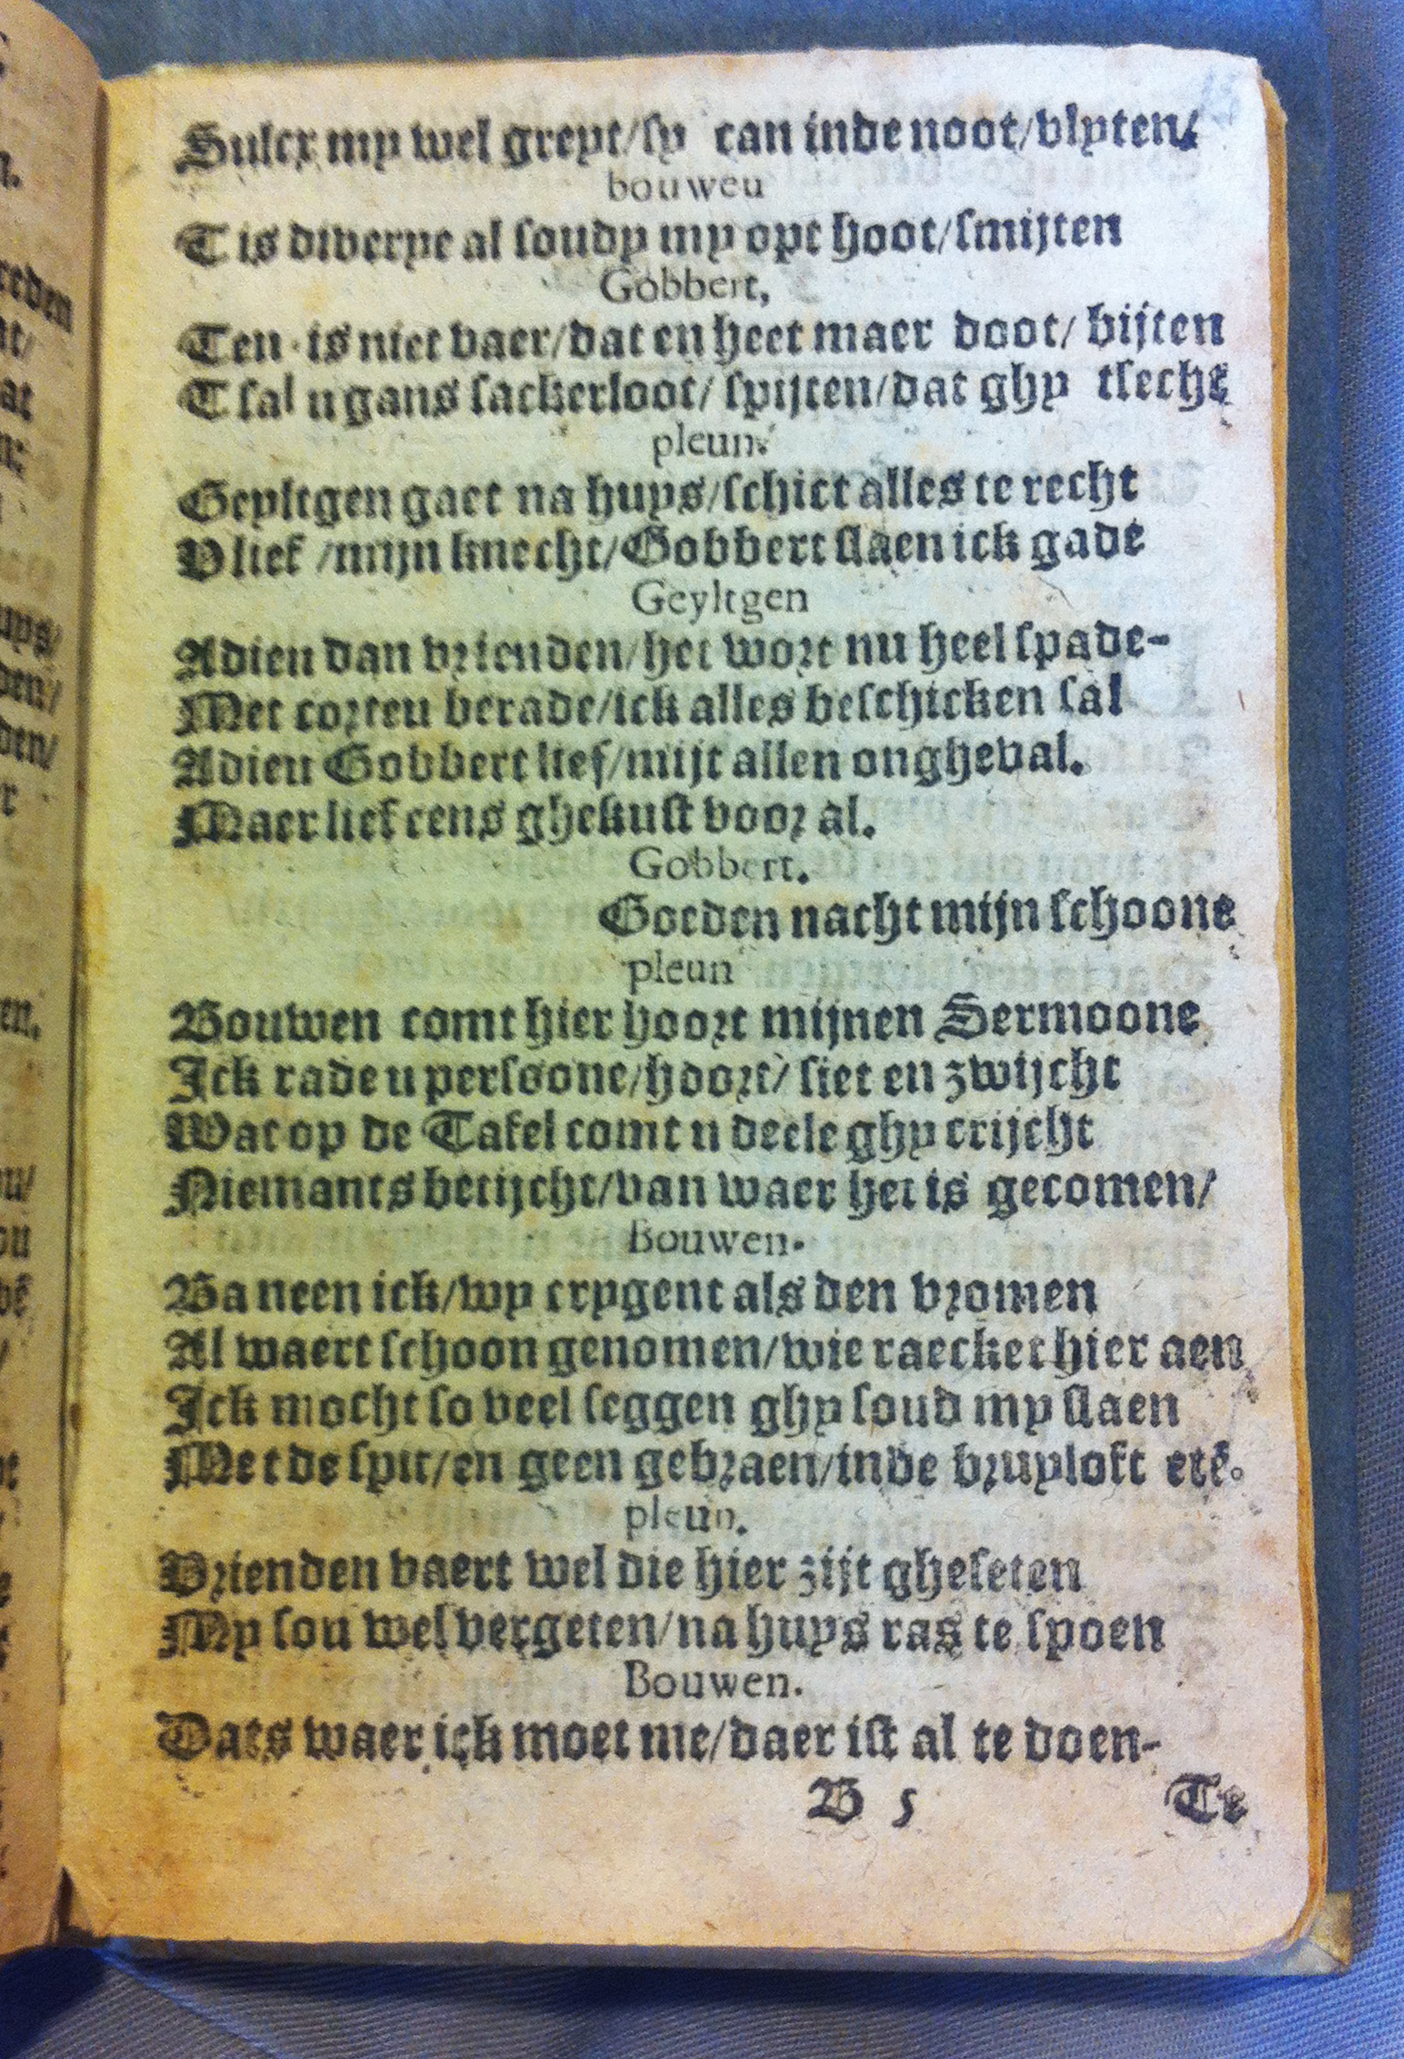 Sulcx my wel greyt/sy can inde noot/vlyten/
bouweu
Tis diverye al soudy my opt hoot/smijten
Gobbert,
Ten is niet vaer/dat en heet maer doot/ bijten
Tsal u gans sackerloot/ spijten/dat ghy tsecht
pleun.
Geyltgen gaet na huys/schict alles te recht
V lief /mijn knecht/Gobbert slaen ick gade
Geyltgen
Adieu dan vrienden/het wort nu heel spade-
Met corteu berade/ick alles beschicken sal
Adieu Gobbert lief/mijt allen ongheval.
Maer lief eens ghekust voor al.
Gobbert.
Goeden nacht mijn schoone
pleun
Bouwen comt hier hoort mijnen Sermoone
Ick rade u persoone/hoort/ siet en zwijcht
Wat op de Tafel comt u deele ghy crijcht
Niemants betijcht/van waer het is gecomen/
Bouwen.
Ba neen ick/wy crygent als den vromen
Al waert schoon genomen/wie raecket hier aen
Ick mocht so veel seggen ghy soud my slaen
Met de spit/en geen gebraen/inde bruyloft etē.
pleun.
Vrienden vaert wel die hier zijt gheseten
My sou wel vergeten/na huys ras te spoen
Bouwen.
Dats waer ick moet me/daer ist al te doen-
B 5 Te